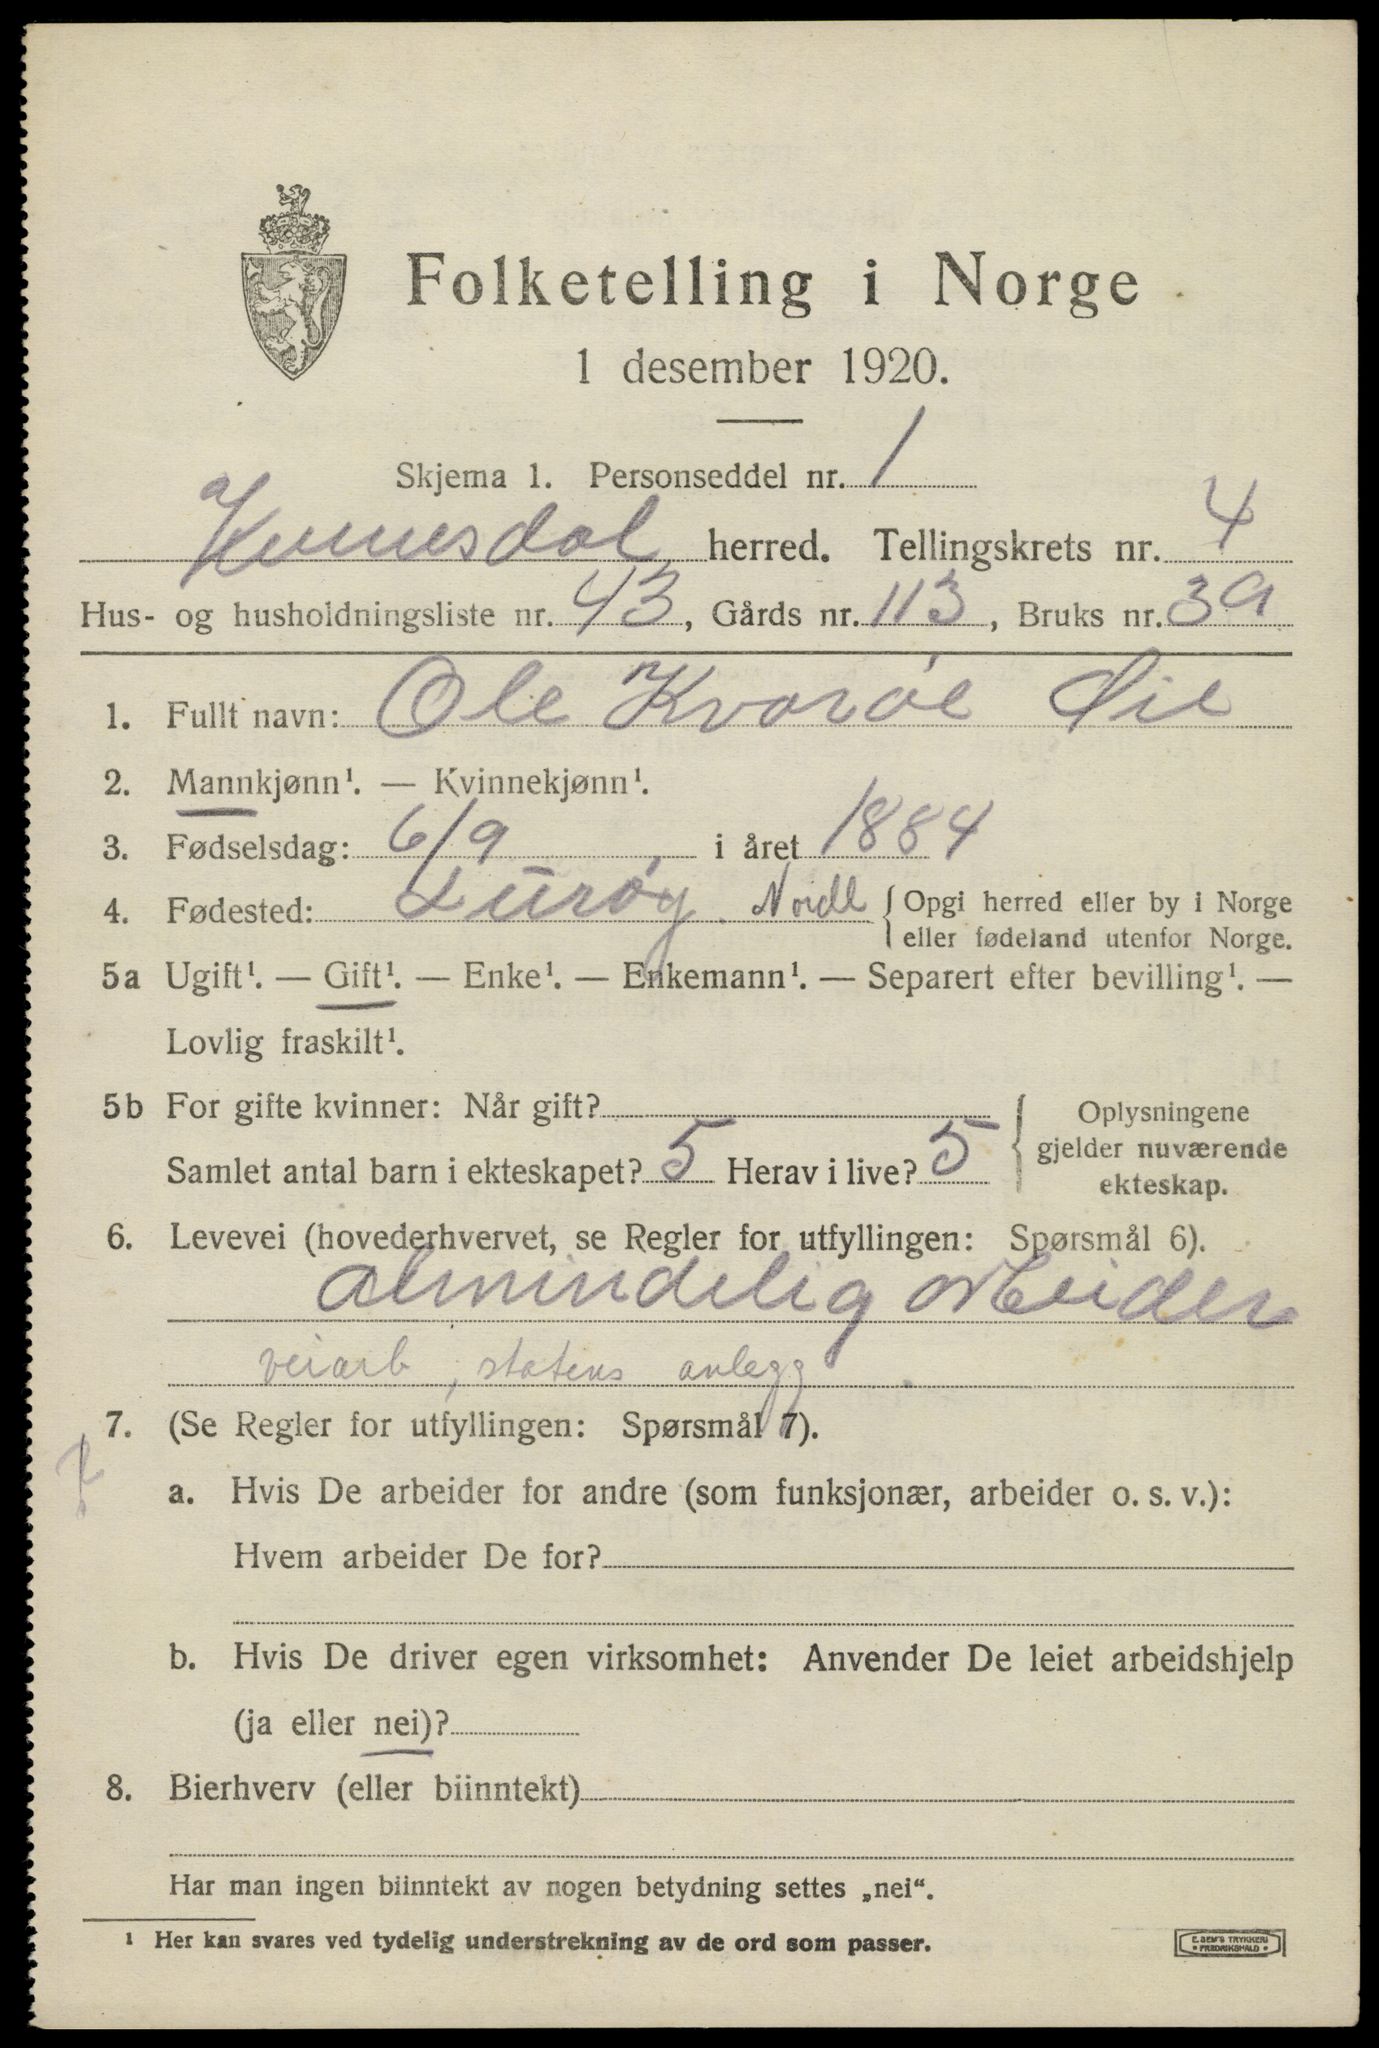 Folketelling i Norge
1 desember 1920.
Skjema 1. Personseddel nr. 1
Kvinesdal herred. Tellingskrets nr. 4
Hus- og husholdningsliste nr. 43, Gårds nr. 113, Bruks nr. 39
1. Fullt navn: Ole Kvarøe Øie
2. Mannkjønn¹. — Kvinnekjønn¹.
3. Fødselsdag: 6/9 i året 1884
4. Fødested: Lurøy. Nordl { Opgi herred eller by i Norge
eller fødeland utenfor Norge.
5a Ugift¹. — Gift¹. — Enke¹. — Enkemann¹. — Separert efter bevilling¹. —
Lovlig fraskilt¹.
5b For gifte kvinner: Når gift?
Samlet antal barn i ekteskapet? 5 Herav i live? 5
Oplysningene
gjelder nuværende
ekteskap.
6. Levevei (hovederhvervet, se Regler for utfyllingen: Spørsmål 6).
almindelig arbeider
veiarb, statens anlegg
7. (Se Regler for utfyllingen: Spørsmål 7).
a. Hvis De arbeider for andre (som funksjonær, arbeider o. s. v.):
Hvem arbeider De for?
b. Hvis De driver egen virksomhet: Anvender De leiet arbeidshjelp
(ja eller nei)?
8. Bierhverv (eller biinntekt)
Har man ingen biinntekt av nogen betydning settes „nei“.
¹ Her kan svares ved tydelig understrekning av de ord som passer.
E. SEM'S TRYKKERI
FREDRIKSHALD